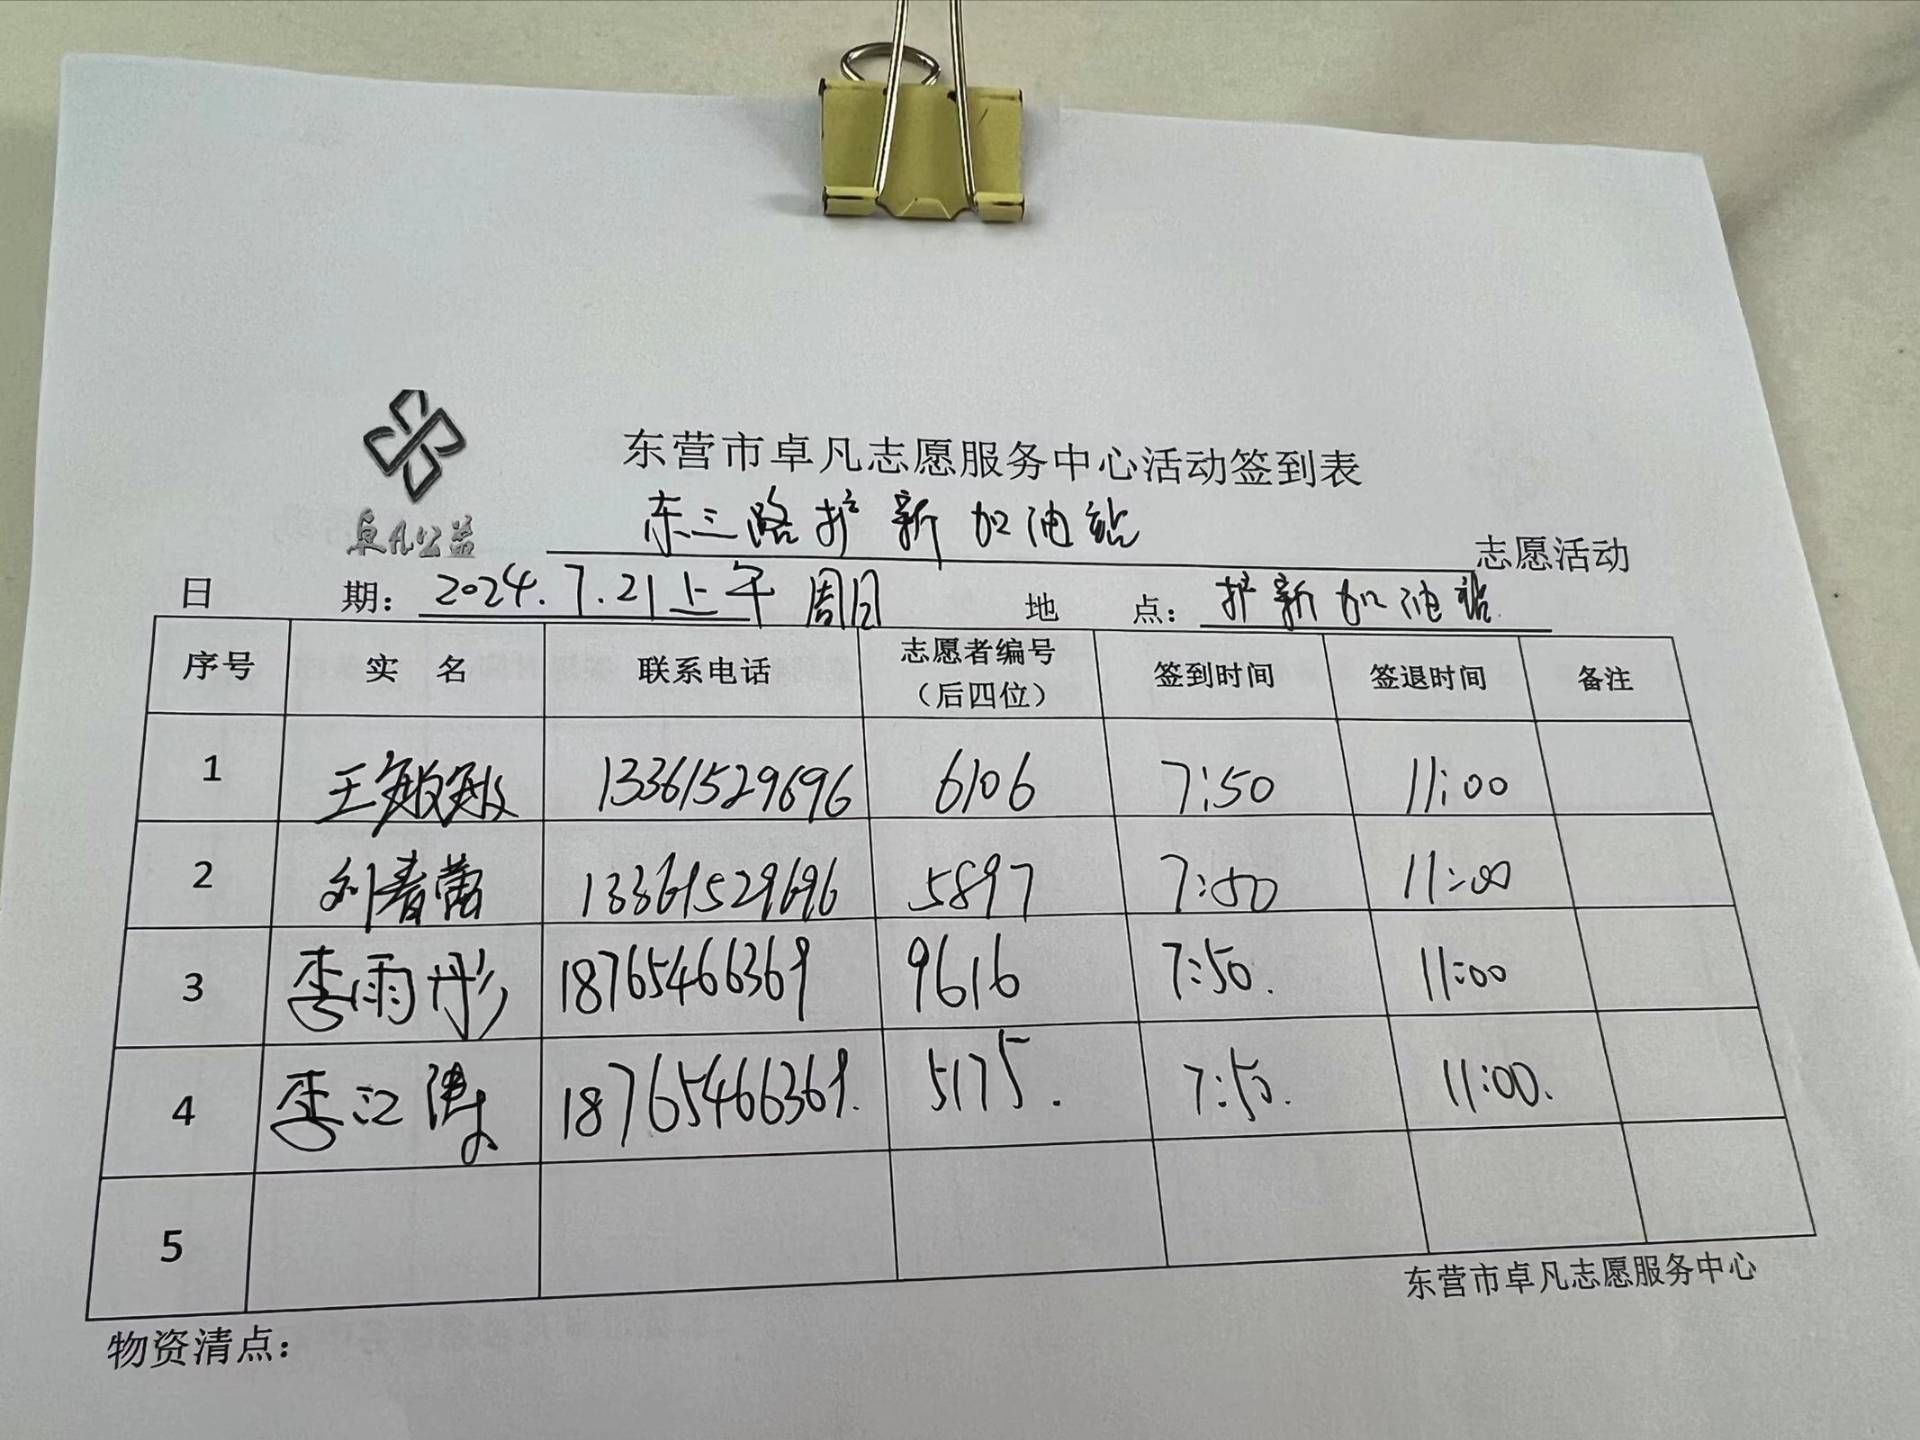 东营市卓凡志愿服务中心活动签到表
卓凡公益
东三路扩新加油站 志愿活动
日期：2024.7.21上午 周日 地点：扩新加油站
序号 实名 联系电话 志愿者编号（后四位） 签到时间 签退时间 备注
1 王敏敏 13361529696 6106 7:50 11:00
2 刘春蕾 13361529696 5897 7:50 11:00
3 李雨彤 18765466369 9616 7:50. 11:00
4 李江 18765466369. 5175. 7:50. 11:00.
5
东营市卓凡志愿服务中心
物资清点：